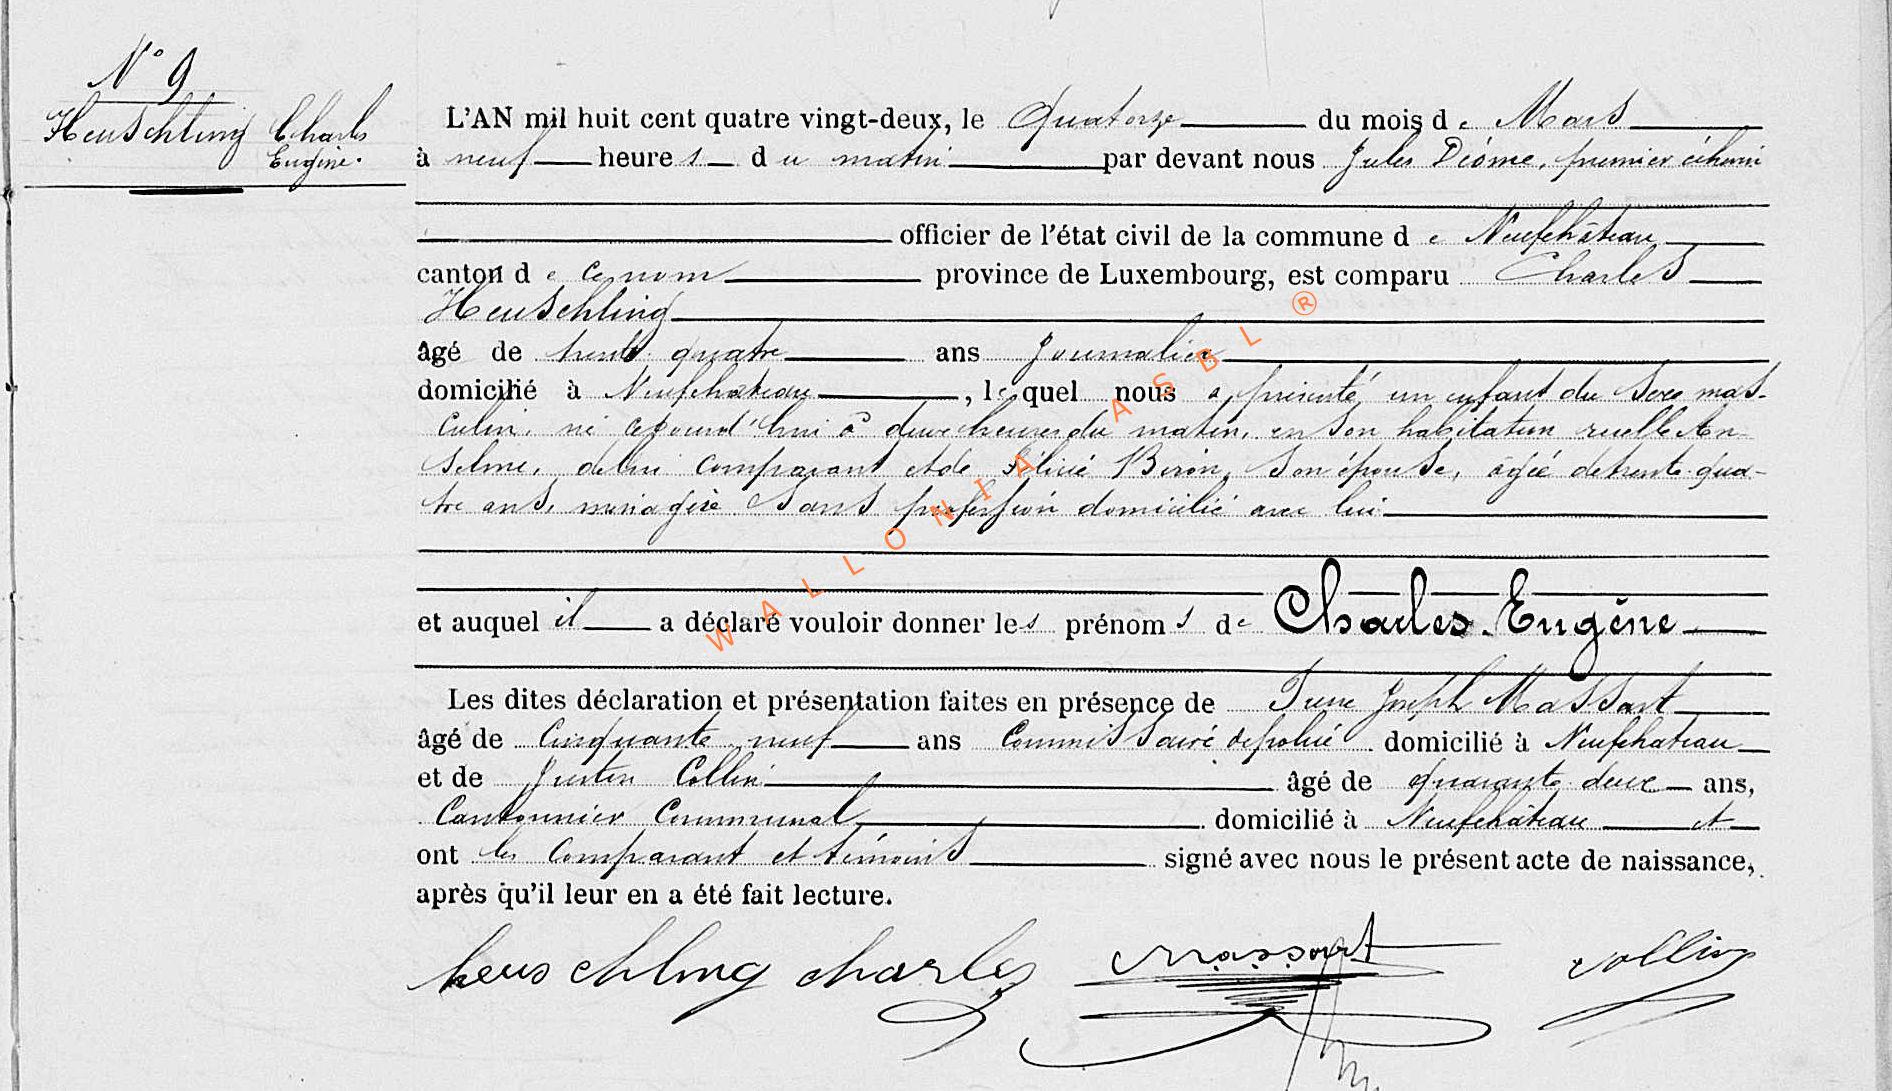 N° 9
Heuschling Charles
Eugène.
L'AN mil huit cent quatre vingt-deux, le Quatorze du mois de Mars
à neuf heures du matin par devant nous Jules Diôme, premier échevin
officier de l'état civil de la commune de Neufchâteau
canton de ce nom province de Luxembourg, est comparu Charles
Heuschling
âgé de trente quatre ans Journalier
domicilié à Neufchateau, lequel nous a présenté un enfant du sexe mas-
culin, né cejourd'hui à deux heures du matin, en son habitation ruelle An-
selme, de lui comparant et de Félicié Biron, son épouse, âgée de trente-qua-
tre ans, ménagère sans profession domicilié avec lui
et auquel il a déclaré vouloir donner les prénoms de Charles-Eugène
Les dites déclaration et présentation faites en présence de Joseph Massart
âgé de Cinquante neuf ans Commissaire de police domicilié à Neufchateau
et de Justin Collin âgé de quarante deux ans,
Cantonnier Communal domicilié à Neufchâteau et
ont les comparant et témoins signé avec nous le présent acte de naissance,
après qu'il leur en a été fait lecture.
heuschling charles Massart Collin
WALLONIA ASBL ®